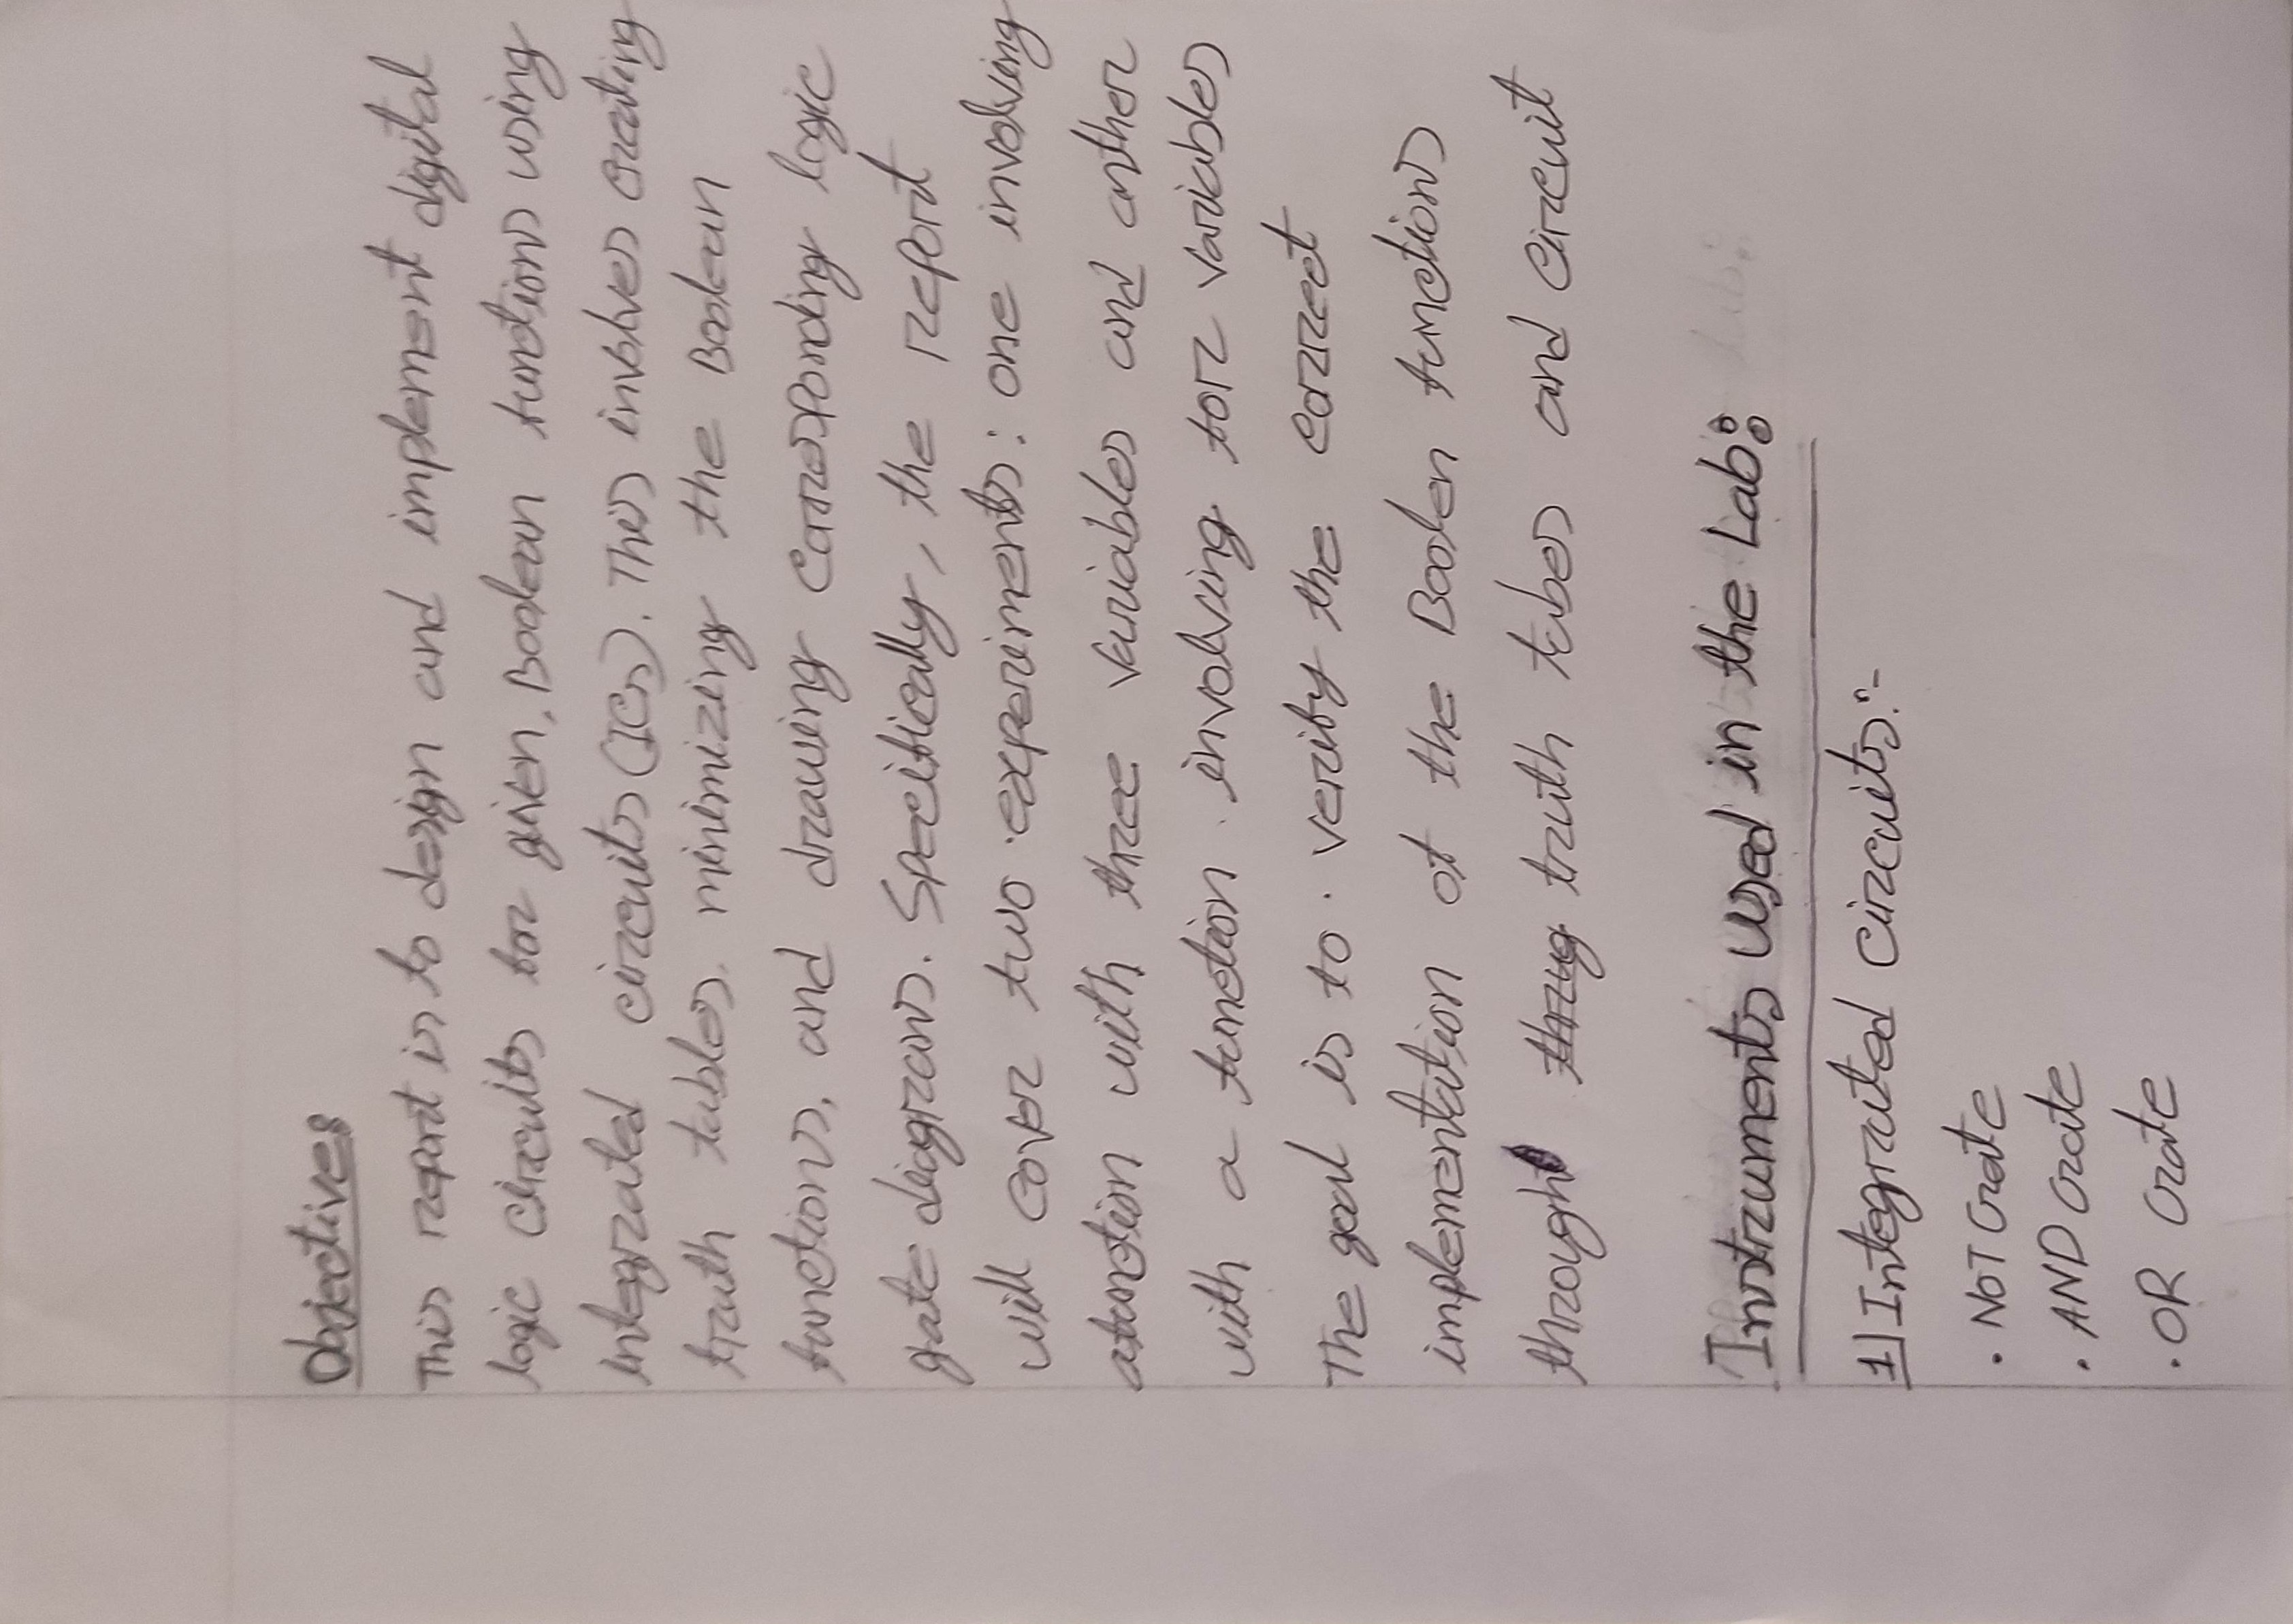 Objectives
This report is to design and implement digital
logic circuits for given, Boolean functions using
integrated circuits (ICs). This involves creating
truth tables. minimizing the Boolean
functions, and drawing corresponding logic
gate diagrams. Specifically, the report
will cover two experiments: one involving
a function with three variables and anther
with a function involving for variables
The goal is to verify the correct
implementation of the Boolen functions
through thrug truth tabes and circuit
Instruments Used in the Lab:
1) Integrated circuits:-
• NOT Gate
• AND Gate
• OR Gate